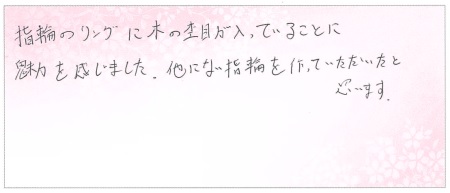 指輪のリングに木の杢目が入っていることに
魅力を感じました。他にない指輪を作っていただいたと
思います。